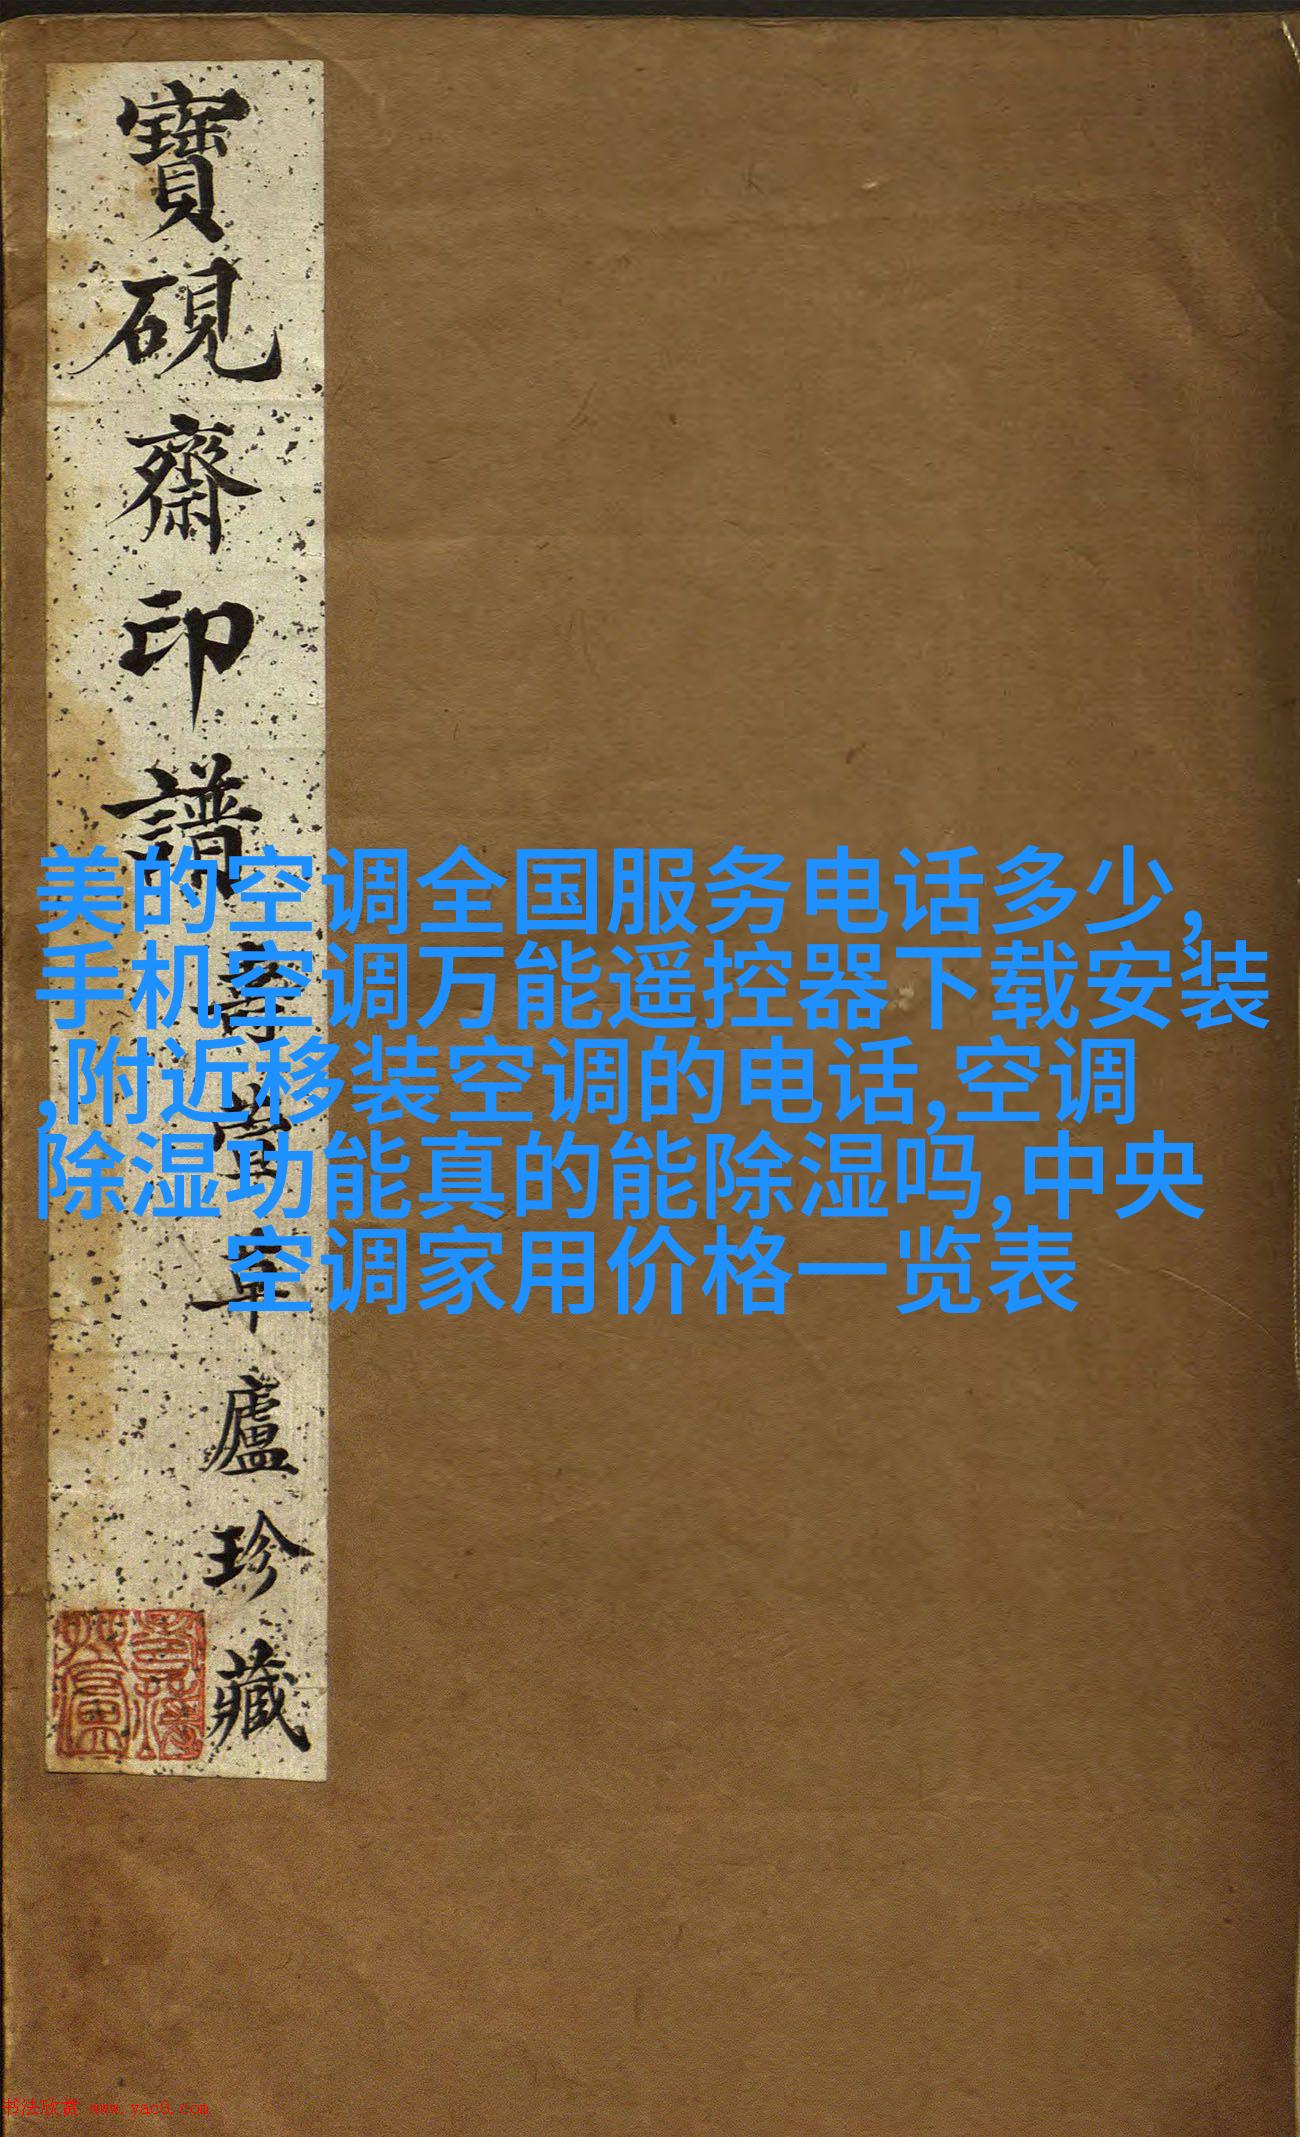 寶硯齋印譜
廬珍藏
美的空调全国服务电话多少,
手机空调万能遥控器下载安装
,附近移装空调的电话,空调
除湿功能真的能除湿吗,中央
空调家用价格一览表
书法欣赏 www.yac8.com